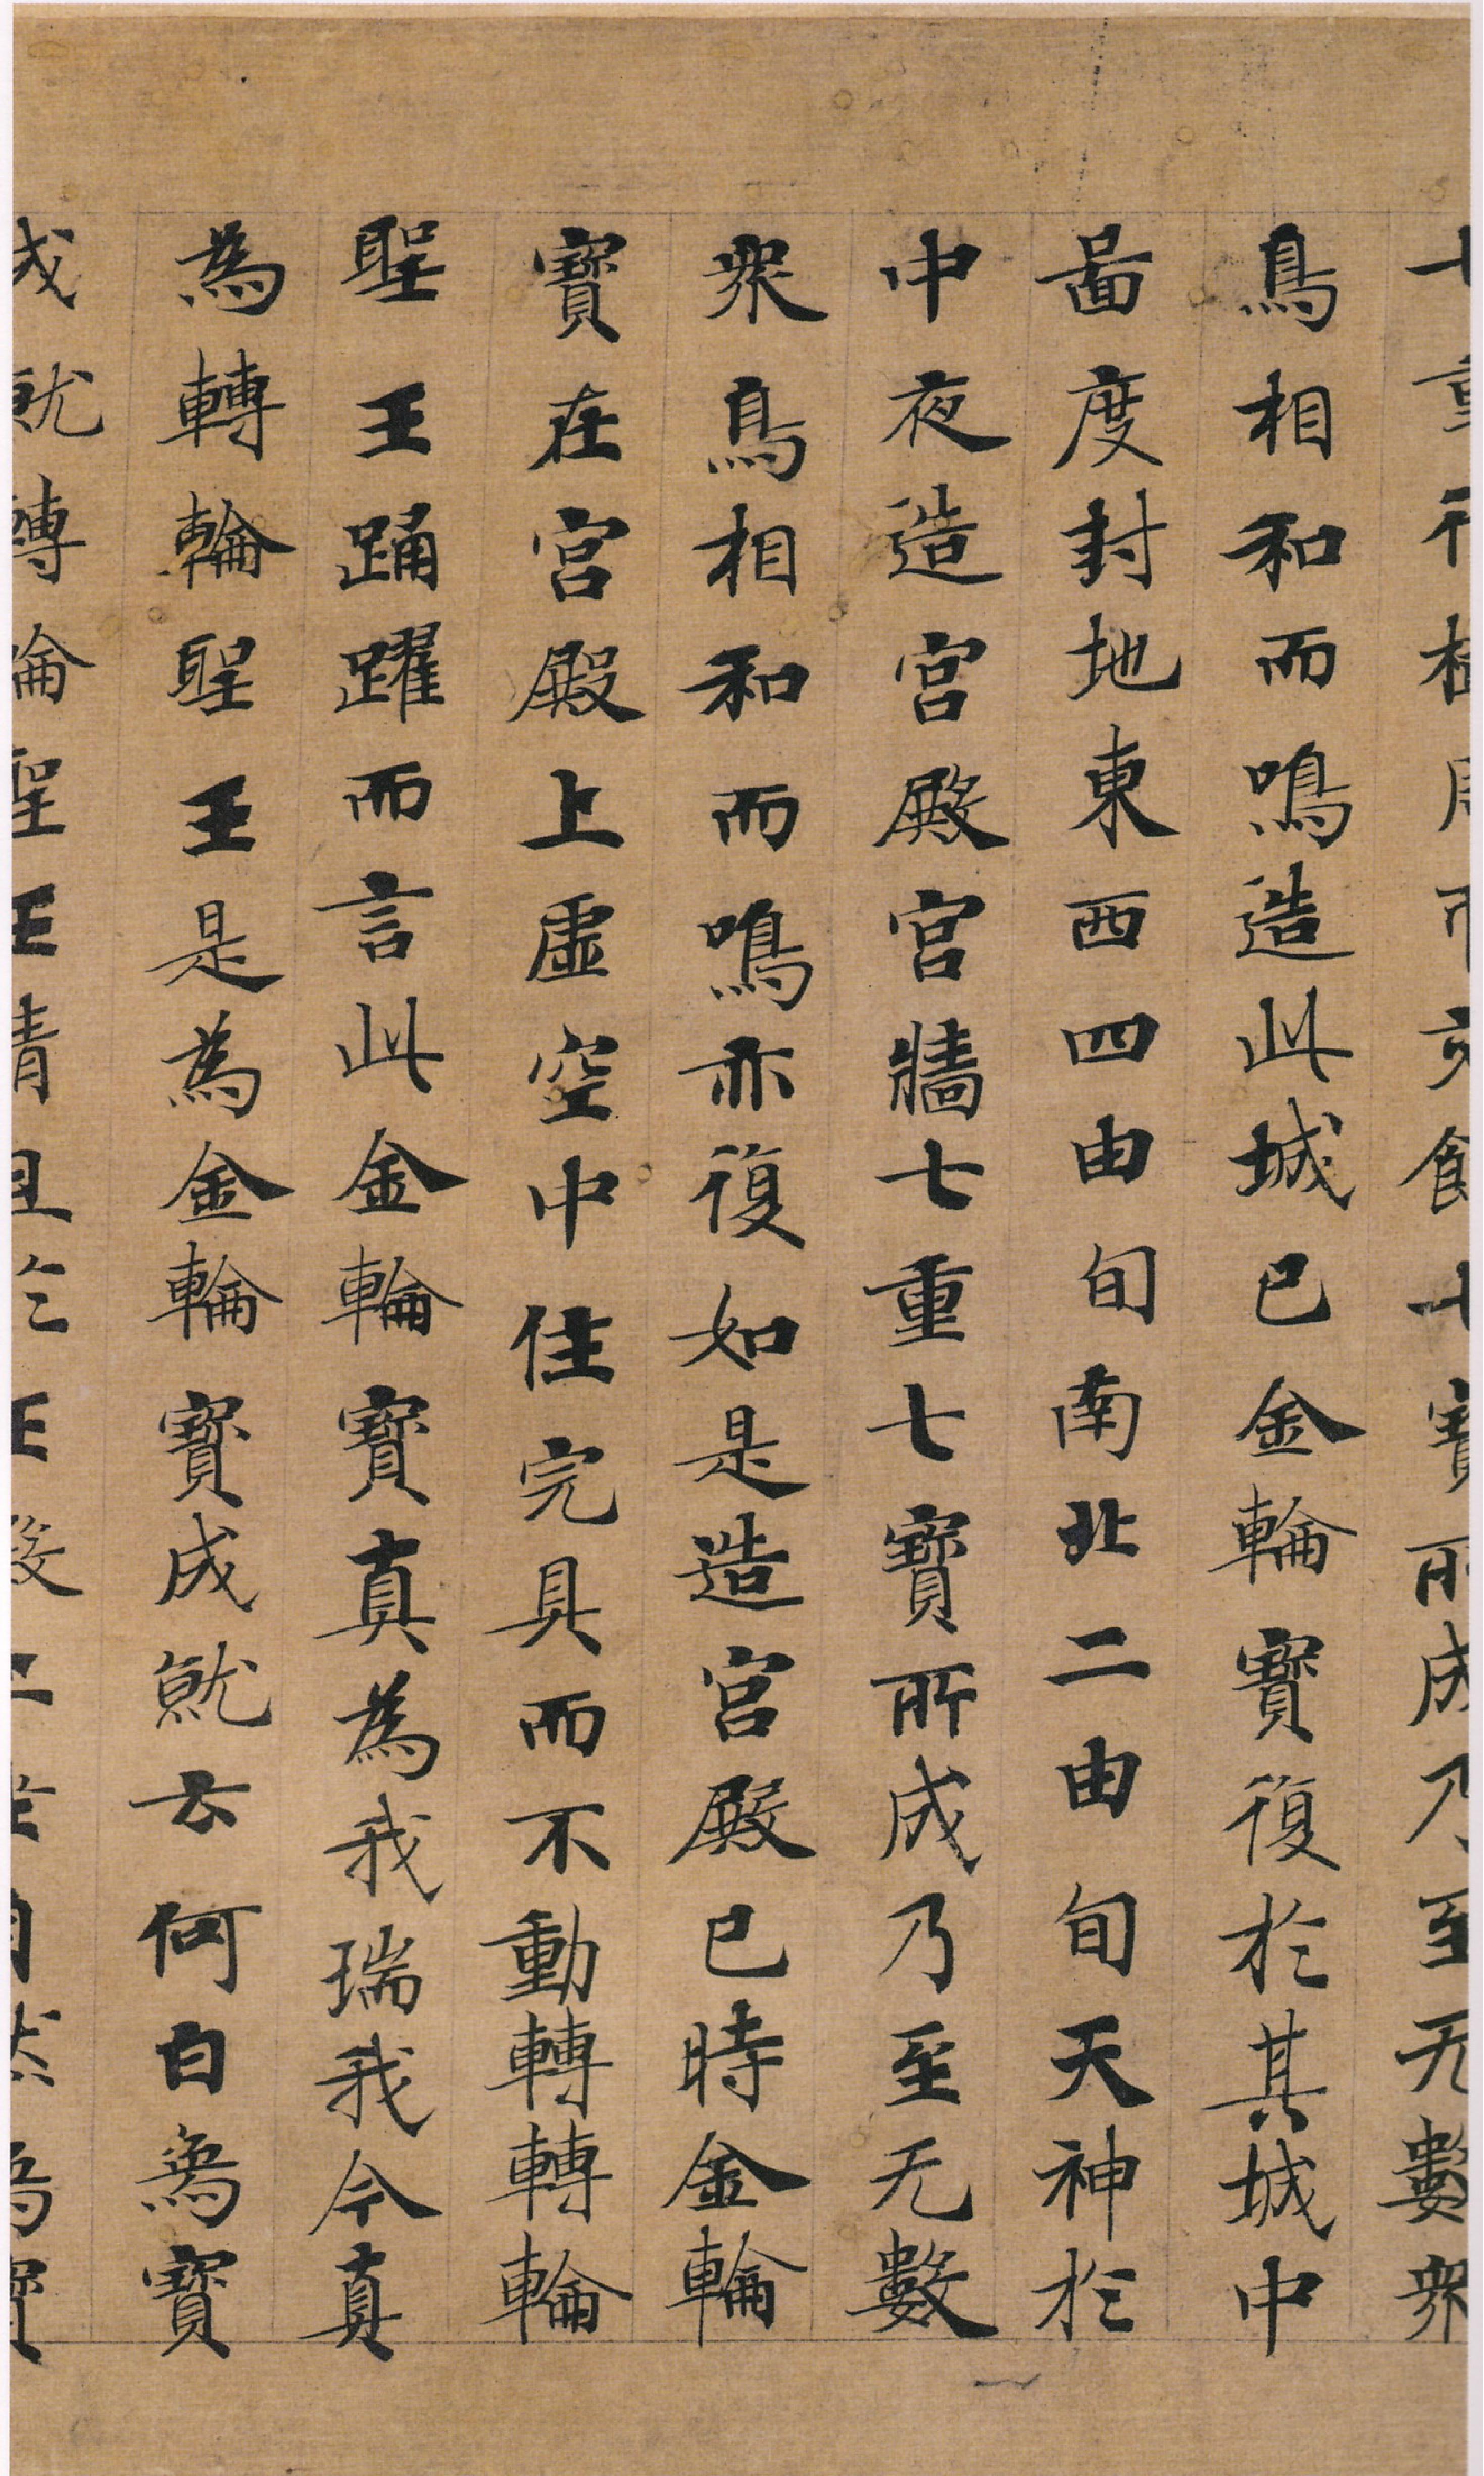 七重行樹周帀交飾七寶所成乃至无數衆
鳥相和而鳴造此城已金輪寶復於其城中
啚度封地東西四由旬南北二由旬天神於
中夜造宮殿宮牆七重七寶所成乃至无數
衆鳥相和而鳴亦復如是造宮殿已時金輪
寶在宮殿上虛空中住完具而不動轉轉輪
聖王踊躍而言此金輪寶真為我瑞我今真
為轉輪聖王是為金輪寶成就云何白烏寶
成就轉輪聖王清旦於正殿上坐自然爲寶